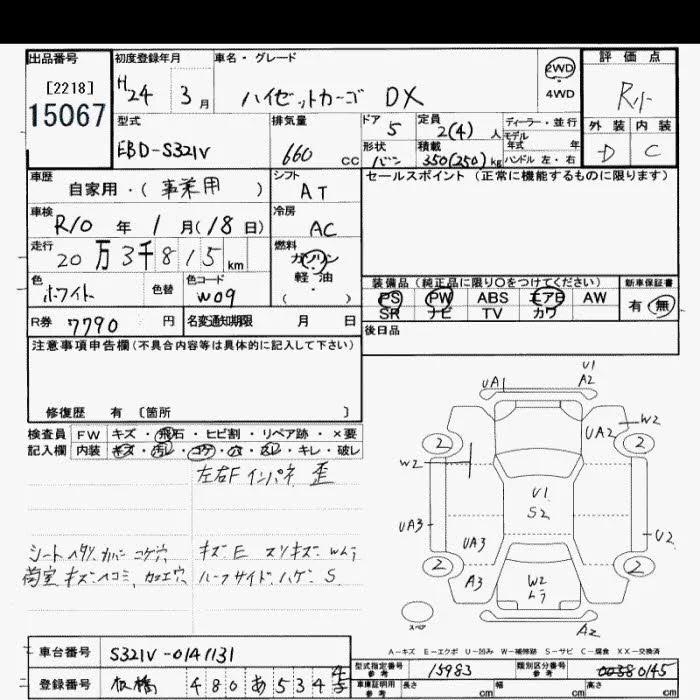 出品番号
[2218]
15067
初度登録年月
H24 3月
車名・グレード
ハイゼットカーゴ DX
2WD
4WD
評価点
外装 内装
D C
型式
EBD-S321V
排気量
660 cc
ドア 5
形状 バン
定員 2(4) 人
積載 350(250) kg
ディーラー・並行
モデル年式 年
ハンドル 左・右
車歴
自家用・(事業用)
シフト
AT
セールスポイント (正常に機能するものに限ります)
車検
R10 年 1 月(18 日)
冷房
AC
走行
20万3千815km
燃料
ガソリン
軽・油
( )
色
ホワイト
色替
色コード
W09
装備品 (純正品に限り〇をつけてください)
PS PW ABS エアB AW
SR ナビ TV カワ
新車保証書
有・無
R券 7790 円
名変通知期限 月 日
後日品
注意事項申告欄(不具合内容等は具体的に記入して下さい)
修復歴 有 〔箇所 〕
検査員記入欄
FW キズ・飛石・ヒビ割・リペア跡・×要
内装 キズ・汚レ・コゲ・穴・スレ・キレ・破レ
左右F インパネ 歪
シートヘタリ、カバー コゲ穴
キズ E スリキズ Wムラ
荷室 キズヘコミ、カエ穴
ルーフサイド ハゲ S
UA1
U1
A2
W2
UA2
2
2
W2
U1
S2
UA3
UA3
U2
2
2
A3
W2
ムラ
A2
スペア
A-キズ E-エクボ U-凹み W-補修跡 S-サビ C-腐食 XX-交換済
車台番号 S321V-0141131
登録番号 板橋 480 あ 534
型式指定番号
参考
15983
類別区分番号
参考
0145
車庫証明用
参考
長さ cm 幅 cm 高さ cm